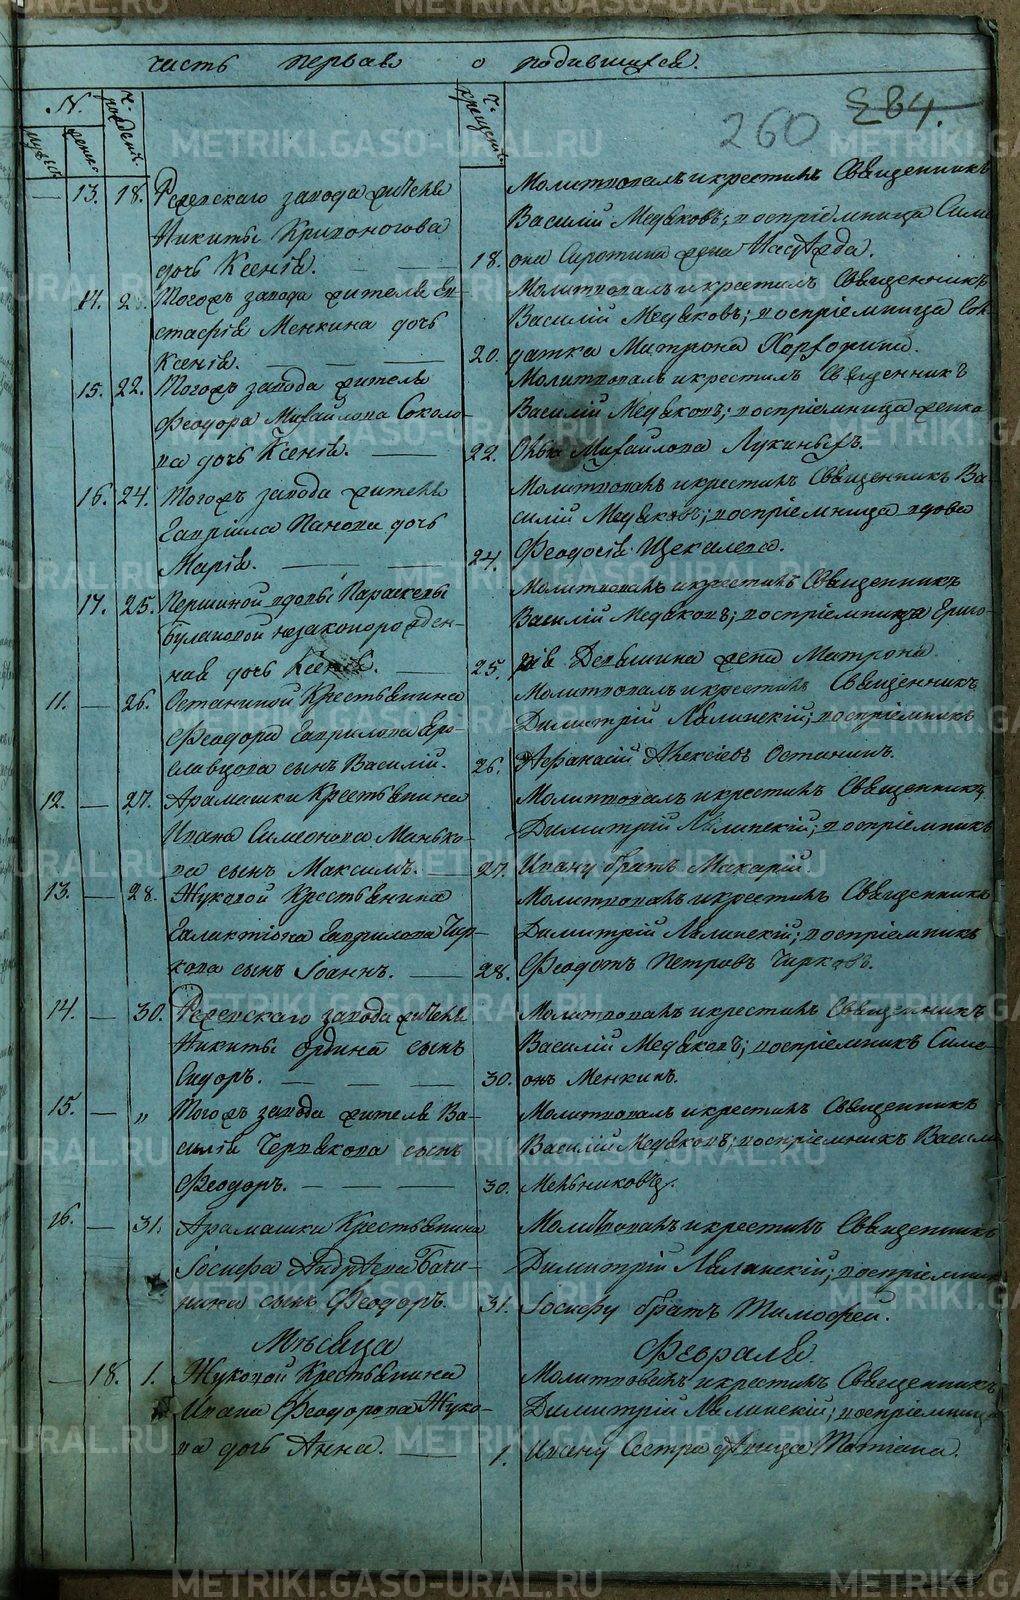 часть первая о родившихся.
260
284.
№.
мужес.
женс.
ч. рождені.
ч. крещені.
13. 18. Режевскаго завода жителя
Никиты Кривоногова
дочь Ксенія.
Молитвовалъ и крестилъ Священникъ
Василій Медяковъ; воспріемница Симе
18. она Сиротина жена
17. 2 Тогожъ завода жителя Ев-
стафія Менкина дочь
Ксенія.
Молитвовалъ и крестилъ Священникъ
Василій Медяковъ; воспріемница Сол-
20. датка Матрона
15. 22. Тогожъ завода жителя
Феодора Михайлова Соколо-
ва дочь Ксенія.
Молитвовалъ и крестилъ Священникъ
Василій Медяковъ; воспріемница женка
22. Михайлова Лукиныхъ.
16. 24. Тогожъ завода жителя
Гавріила Панова дочь
Марія.
Молитвовалъ и крестилъ Священникъ Ва-
силій Медяковъ; воспріемница вдова
24. Феодосія Щекалева.
17. 25. Першиной вдовы Параскевы
Булановой незаконорожден-
ная дочь Ксенія.
Молитвовалъ и крестилъ Священникъ
Василій Медяковъ; воспріемница Григо-
25. рія жена Матрона.
11. 26. Останиной Крестьянина
Феодора Гаврилова Яро-
славцова сынъ Василій.
Молитвовалъ и крестилъ Священникъ
Димитрій Лялинскій; воспріемникъ
26. Афанасій Алексіевъ Останинъ.
12. 27. Арамашки Крестьянина
Ивана Симеонова Манько-
ва сынъ Максимъ.
Молитвовалъ и крестилъ Священникъ
Димитрій Лялинскій; воспріемникъ
27. Ивану братъ Макарій.
13. 28. Жуковой Крестьянина
Галактіона Гаврилова Чир-
кова сынъ Іоаннъ.
Молитвовалъ и крестилъ Священникъ
Димитрій Лялинскій; воспріемникъ
28. Феодотъ Петровъ Чирковъ.
14. 30. Режевскаго завода жителя
Никиты Ордина сынъ
Сидоръ.
Молитвовалъ и крестилъ Священникъ
Василій Медяковъ; воспріемникъ Симе-
30. онъ Менкинъ.
15. „ Тогожъ завода жителя Ва-
силія Черпакова сынъ
Феодоръ.
Молитвовалъ и крестилъ Священникъ
Василій Медяковъ; воспріемникъ Васили
30. Мельниковъ.
16. 31. Арамашки Крестьянина
Іосифа Андреева Бачи-
нина сынъ Феодоръ.
Молитвовалъ и крестилъ Священникъ
Димитрій Лялинскій; воспріемник
31. Іосифу братъ Тимофей.
Мѣсяца Февраля
18. 1. Жуковой Крестьянина
Ивана Феодорова Жуко-
ва дочь Анна.
Молитвовалъ и крестилъ Священникъ
Димитрій Лялинскій; воспріемница
1. Ивану Сестра дѣвица Татіана.
METRIKI.GASO-URAL.RU